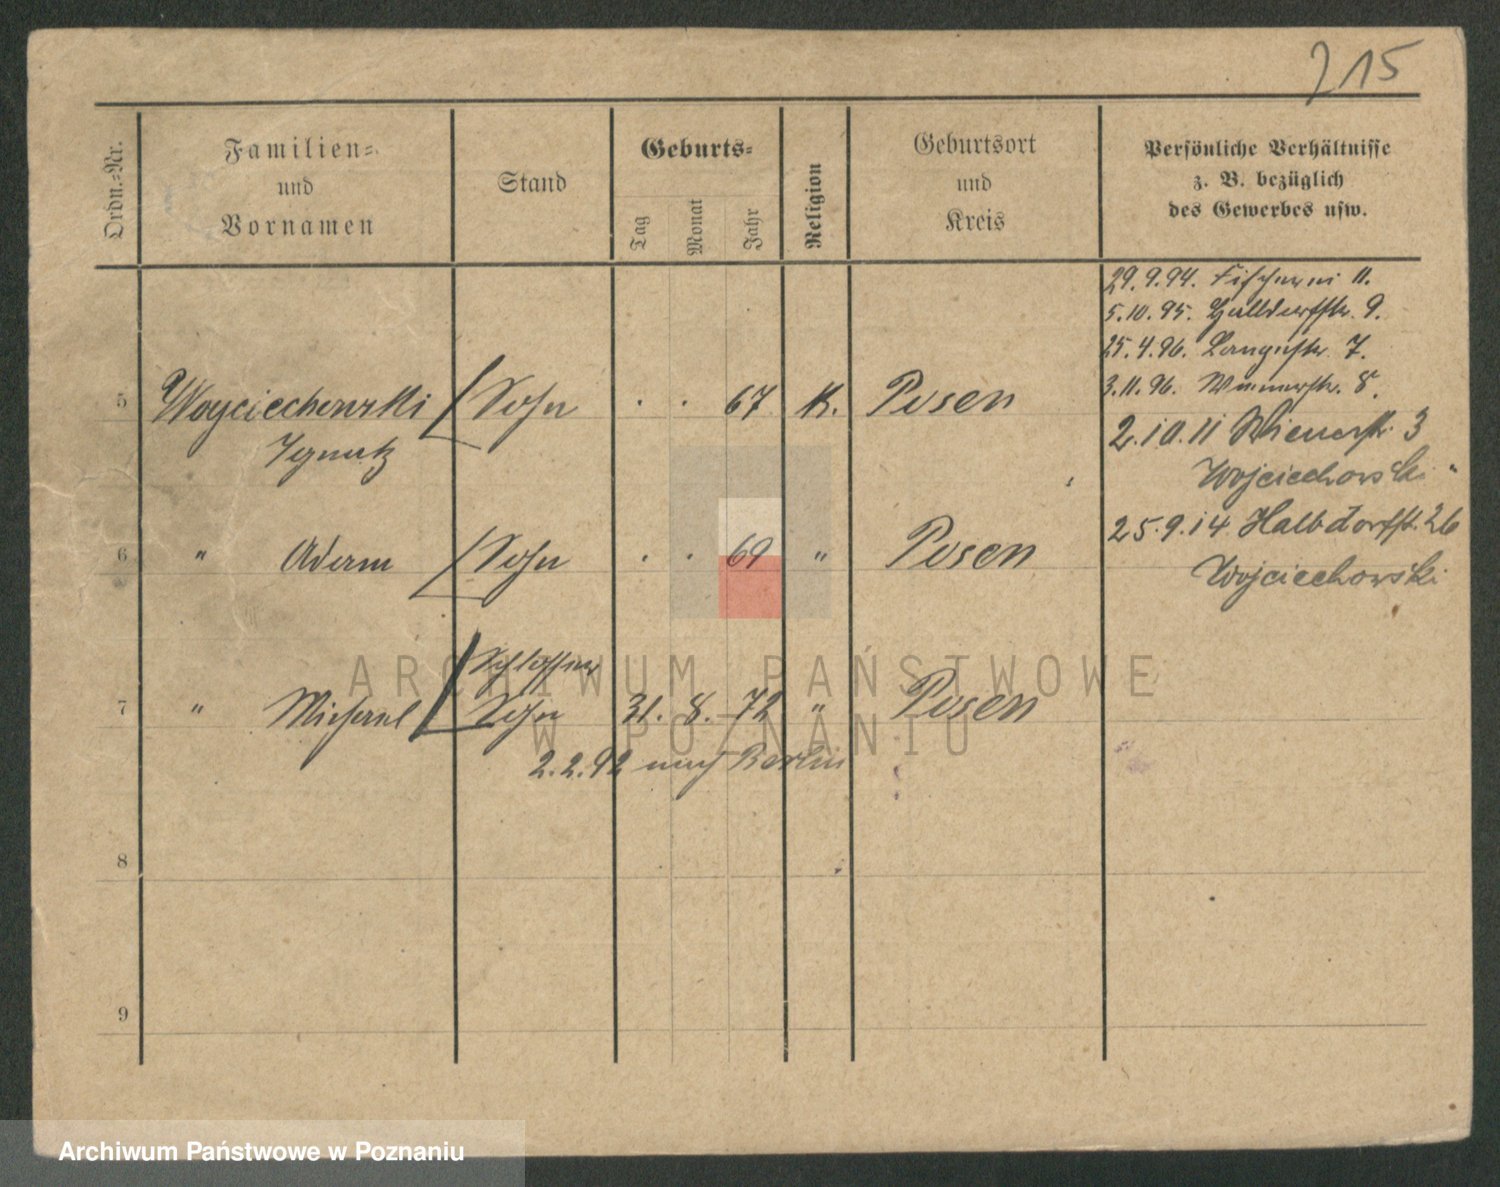 215
Ordn.-Nr.
Familien-
und
Vornamen
Stand
Geburts-
Tag
Monat
Jahr
Religion
Geburtsort
und
Kreis
Persönliche Verhältnisse
z. B. bezüglich
des Gewerbes usw.
29.9.94. Fischerei 11.
5.10.95. Halbdorfstr. 9.
25.4.96. Langestr. 7.
3.11.96. Wienerstr. 8.
5 Woyciechowski Sohn . . 67 K. Posen
2.10.11 Wienerstr. 3
Ignatz
Wojciechowski
25.9.14 Halbdorfst. 26
6 " Adam Sohn . . 69 " Posen
Wojciechowski
Schlosser
7 " Michael Sohn 31. 8. 72 " Posen
2.2.92 nach Berlin
8
9
ARCHIWUM PAŃSTWOWE
W POZNANIU
Archiwum Państwowe w Poznaniu